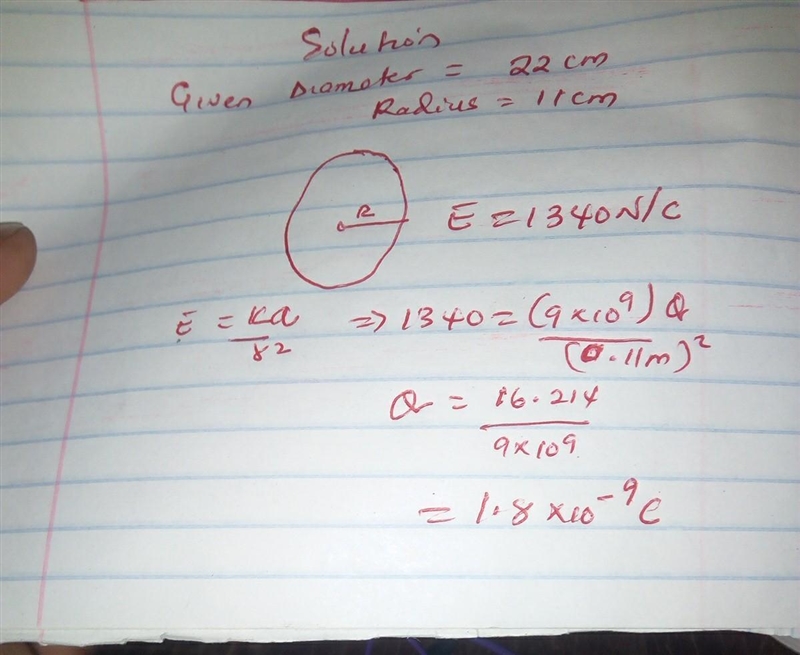 Solution
Given Diameter = 22 cm
Radius = 11 cm
R
E = 1340 N/C
E = KQ / r2 => 1340 = (9 x 10^9) Q / (0.11m)^2
Q = 16.214 / 9x10^9
= 1.8 x10^-9 C